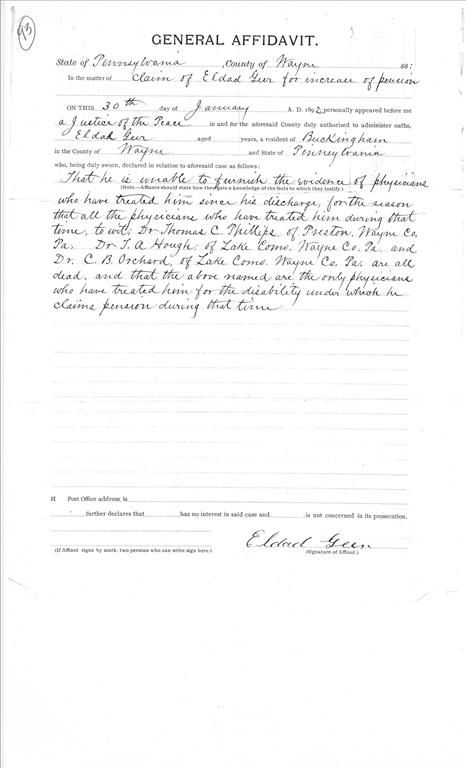 93
GENERAL AFFIDAVIT.
State of Pennsylvania, County of Wayne ss:
In the matter of Claim of Eldad Geer for increase of pension
ON THIS 30th day of January A. D. 1892, personally appeared before me
a Justice of the Peace in and for the aforesaid County duly authorized to administer oaths,
Eldad Geer aged years, a resident of Buckingham
in the County of Wayne and State of Pennsylvania
who, being duly sworn, declared in relation to aforesaid case as follows:
That he is unable to furnish the evidence of physicians
(Note.—Affiants should state how they gain a knowledge of the facts to which they testify.)
who have treated him since his discharge, for the reason
that all the physicians who have treated him during that
time, to wit; Dr Thomas C. Phillips, of Preston, Wayne Co,
Pa. Dr T. A Hough, of Lake Como, Wayne Co, Pa. and
Dr. C. B. Orchard, of Lake Como, Wayne Co, Pa, are all
dead, and that the above named are the only physicians
who have treated him for the disability under which he
claims pension during that time
H Post Office address is
further declares that has no interest in said case and is not concerned in its prosecution.
Eldad Geer
(If Affiant signs by mark, two persons who can write sign here.) (Signature of Affiant.)